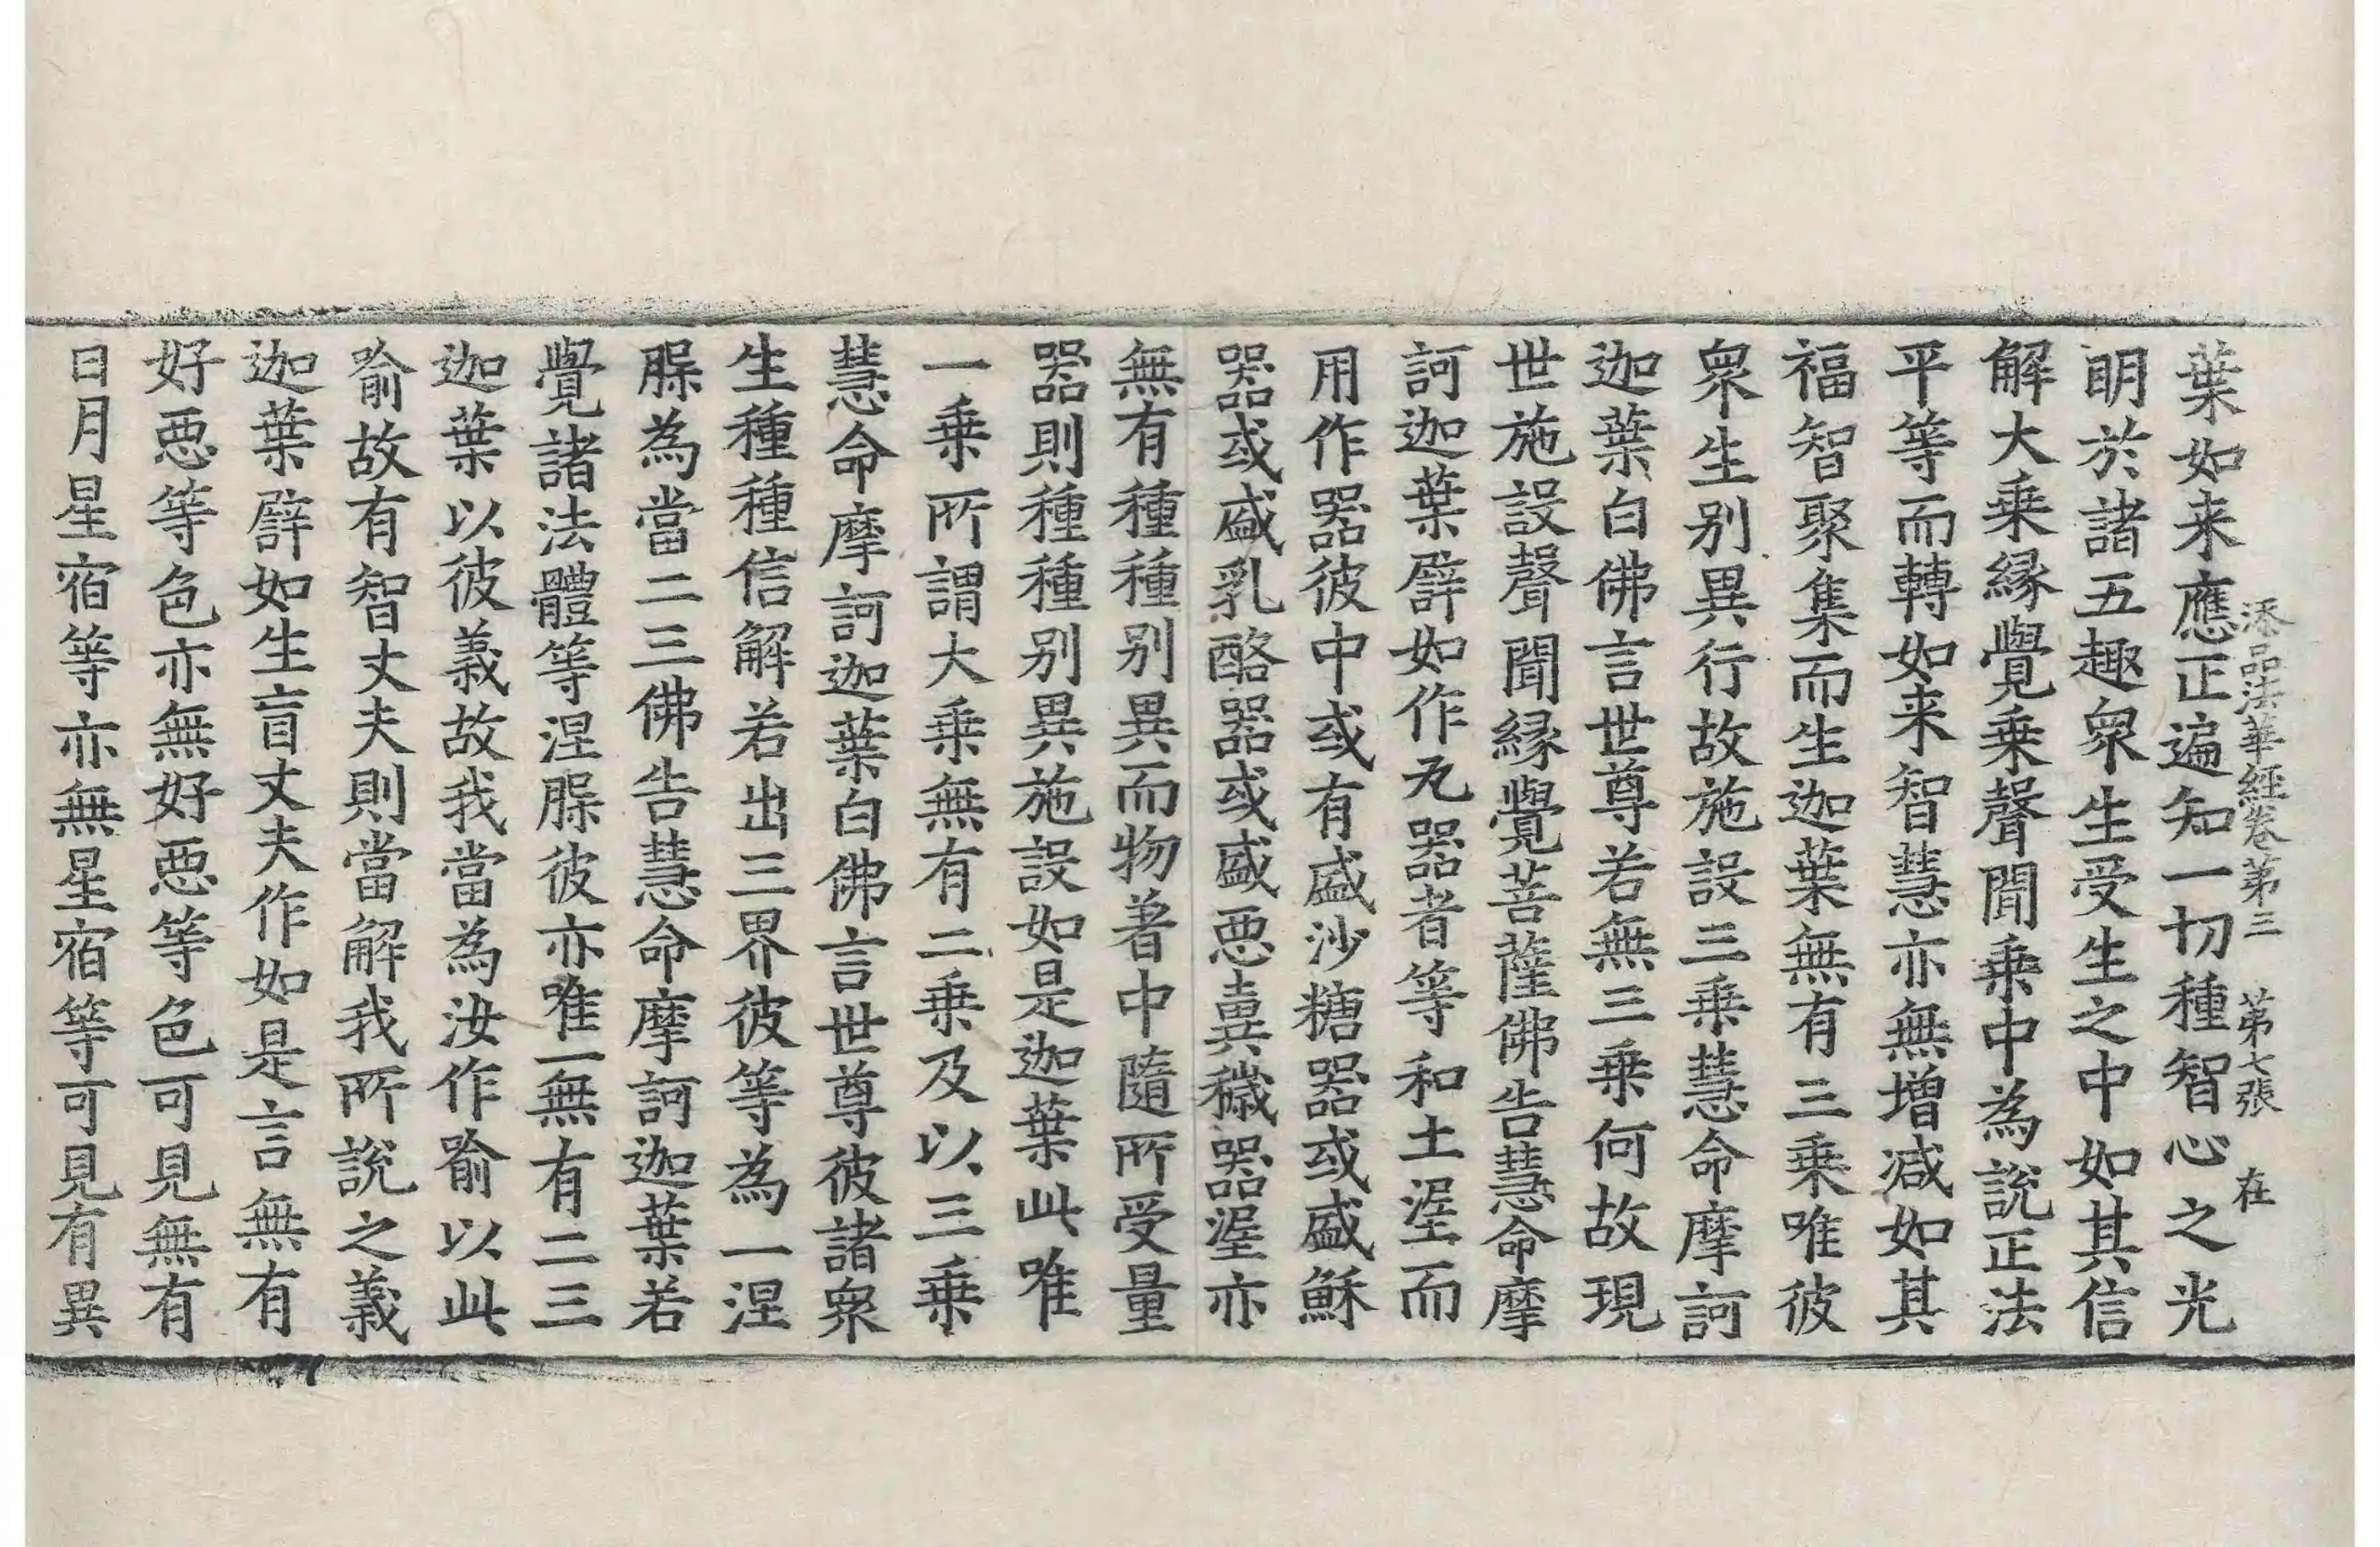 添品法華經卷第三 第七張 在
葉如来應正遍知一切種智心之光
明於諸五趣衆生受生之中如其信
解大乗縁覺乗聲聞乗中為說正法
平等而轉如来智慧亦無增减如其
福智聚集而生迦葉無有三乗唯彼
衆生别異行故施設三乗慧命摩訶
迦葉白佛言世尊若無三乗何故現
世施設聲聞縁覺菩薩佛告慧命摩
訶迦葉譬如作瓦器者等和土埿而
用作器彼中或有盛沙糖器或盛穌
器或盛乳酪器或盛惡糞穢器埿亦
無有種種别異而物著中隨所受量
器則種種别異施設如是迦葉此唯
一乗所謂大乗無有二乗及以三乗
慧命摩訶迦葉白佛言世尊彼諸衆
生種種信解若出三界彼等為一涅
槃為當二三佛告慧命摩訶迦葉若
覺諸法體等涅槃彼亦唯一無有二三
迦葉以彼義故我當為汝作喻以此
喻故有智丈夫則當解我所說之義
迦葉譬如生盲丈夫作如是言無有
好惡等色亦無好惡等色可見無有
日月星宿等亦無星宿等可見有異